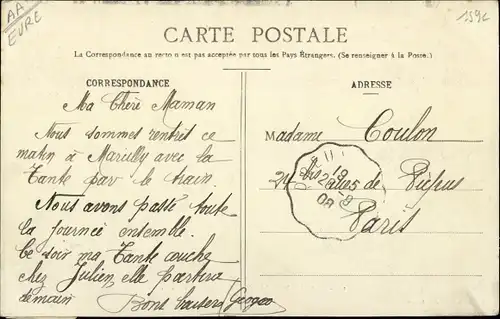 AA
EURE
159c
CARTE POSTALE
La Correspondance au recto n'est pas acceptée par tous les Pays Étrangers. (Se renseigner à la Poste.)
CORRESPONDANCE
Ma Chère Maman
Nous sommes rentrés ce
matin à Marcilly avec la
Tante par le train
Nous avons passé toute
la journée ensemble.
Ce soir ma Tante couche
chez Julien, elle partira
demain
Bons baisers Georges
ADRESSE
Madame Coulon
24 de Picpus
Paris